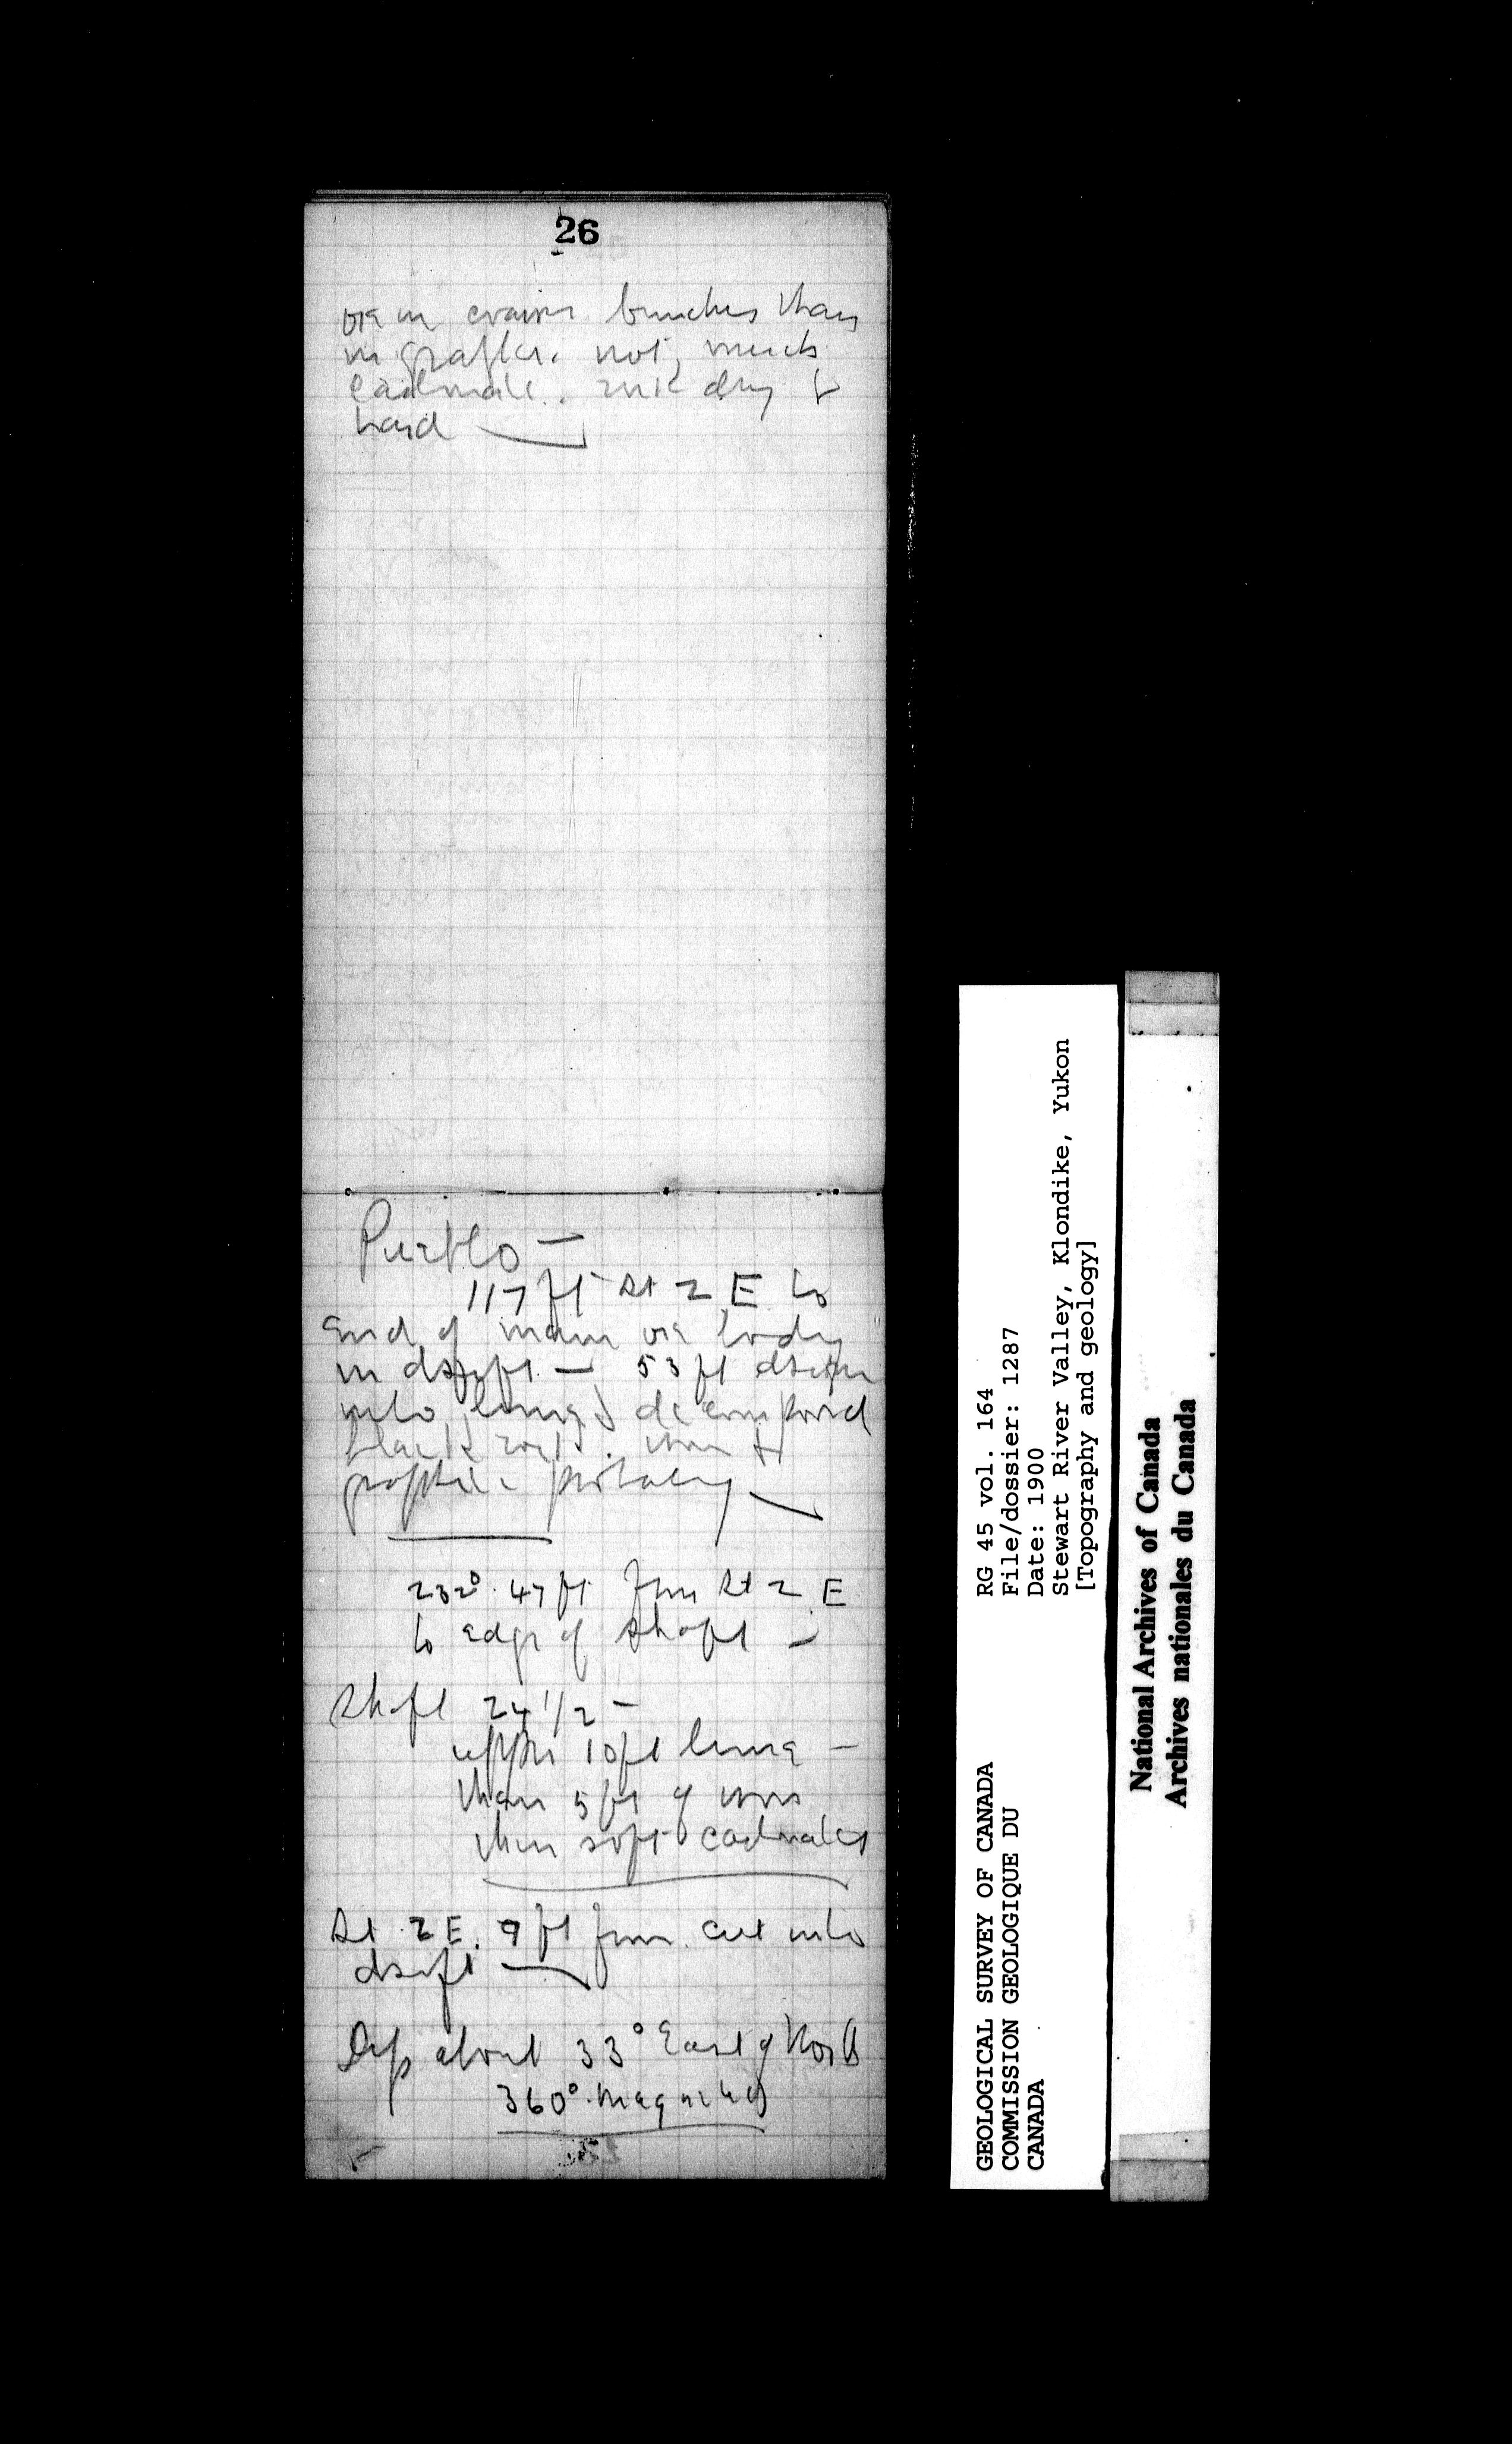 26
ore in coarser bunches than
in Grafter. not much
Carbonate. rock dry &
hard
Pueblo —
117 ft St 2 E to
End of main ore body
in drift — 53 ft
into lime & decomposed
black rock. iron &
probably
232° 47 ft from St 2 E
to edge of shaft —
Shaft 24 1/2 —
upper 10 ft lime —
then 5 ft of iron
then soft carbonates
St 2 E. 9 ft from cut into
drift
Dip about 33° East of North
360° Magnetic
GEOLOGICAL SURVEY OF CANADA
COMMISSION GEOLOGIQUE DU
CANADA
RG 45 vol. 164
File/dossier: 1287
Date: 1900
Stewart River Valley, Klondike, Yukon
[Topography and geology]
National Archives of Canada
Archives nationales du Canada